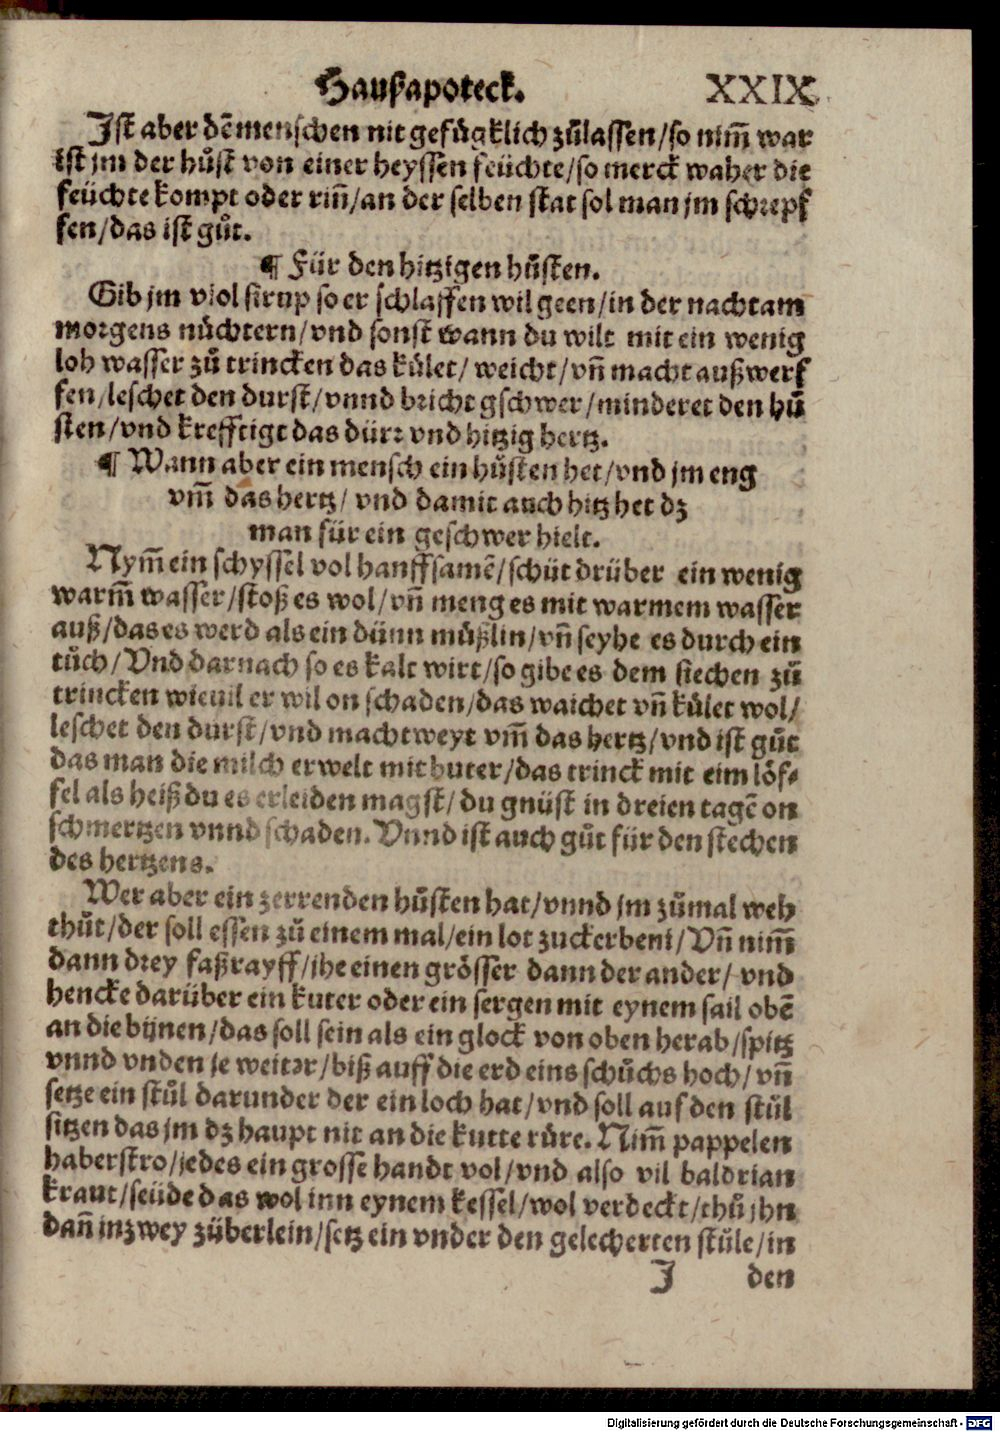 Haußapoteck. XXIX.
Ist aber dē menschen nit gefůgklich zůlassen/so nim̃ war
ist jm der hůst von einer heyssen feüchte/so merck waher die
feüchte kompt oder rin̄/an der selben stat sol man jm schrepf
fen/das ist gůt.
¶ Für den hitzigen hůsten.
Gib jm viol sirup so er schlaffen wil geen/in der nacht am
morgens nůchtern/vnd sonst wann du wilt mit ein wenig
loh wasser zů trincken das kület/ weicht/vn̄ macht außwerf
fen/leschet den durst/vnnd bricht gschwer/minderet den hů
sten/vnd krefftigt das dürr vnd hitzig hertz.
¶ Wann aber ein mensch ein hůsten het/vnd jm eng
vm̄ das hertz/ vnd damit auch hitz het dz
man für ein geschwer hielt.
Nym̄ ein schyssel vol hanffsamē/schüt drüber ein wenig
warm̄ wasser/stoß es wol/vn̄ meng es mit warmem wasser
auß/das es werd als ein dünn můßlin/vn̄ seyhe es durch ein
tůch/Vnd darnach so es kalt wirt/so gibe es dem siechen zů
trincken wieuil er wil on schaden/das waichet vn̄ kület wol/
leschet den durst/vnd macht weyt vm̄ das hertz/vnd ist gůt
das man die milch erwelt mit buter/das trinck mit eim löf-
fel als heiß du es erleiden magst/ du gnüst in dreien tagē on
schmertzen vnnd schaden. Vnnd ist auch gůt für den stechen
des hertzens.
Wer aber ein zerrenden hůsten hat/vnnd jm zůmal weh
thůt/der soll essen zů einem mal/ein lot zuckerbeni/Vn̄ nim̄
dann drey faßrayff/jhe einen grösser dann der ander/ vnd
hencke darüber ein kuter oder ein sergen mit eynem sail obē
an die bünen/das soll sein als ein glock von oben herab/spitz
vnnd vnden je weiter/biß auff die erd eins schůchs hoch/ vn̄
setze ein stůl darunder der ein loch hat/vnd soll auf den stůl
sitzen das jm dz haupt nit an die kutte růre. Nim̄ pappelen
haberstro/jedes ein grosse handt vol/vnd also vil baldrian
kraut/seüde das wol inn eynem kessel/wol verdeckt/thů jhn
dan̄ in zwey züberlein/setz ein vnder den gelecherten stůle/in
J den
Digitalisierung gefördert durch die Deutsche Forschungsgemeinschaft - DFG